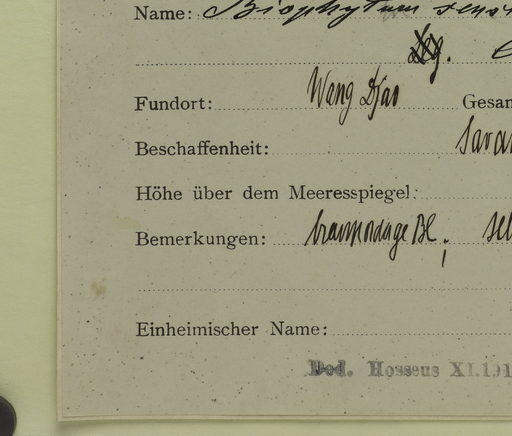 Name: Biophytum sens
Fundort: Wang Djao Gesam
Beschaffenheit: Savan
Höhe über dem Meeresspiegel:
Bemerkungen: Bl; sel
Einheimischer Name:
Ded. Hosseus XI.191